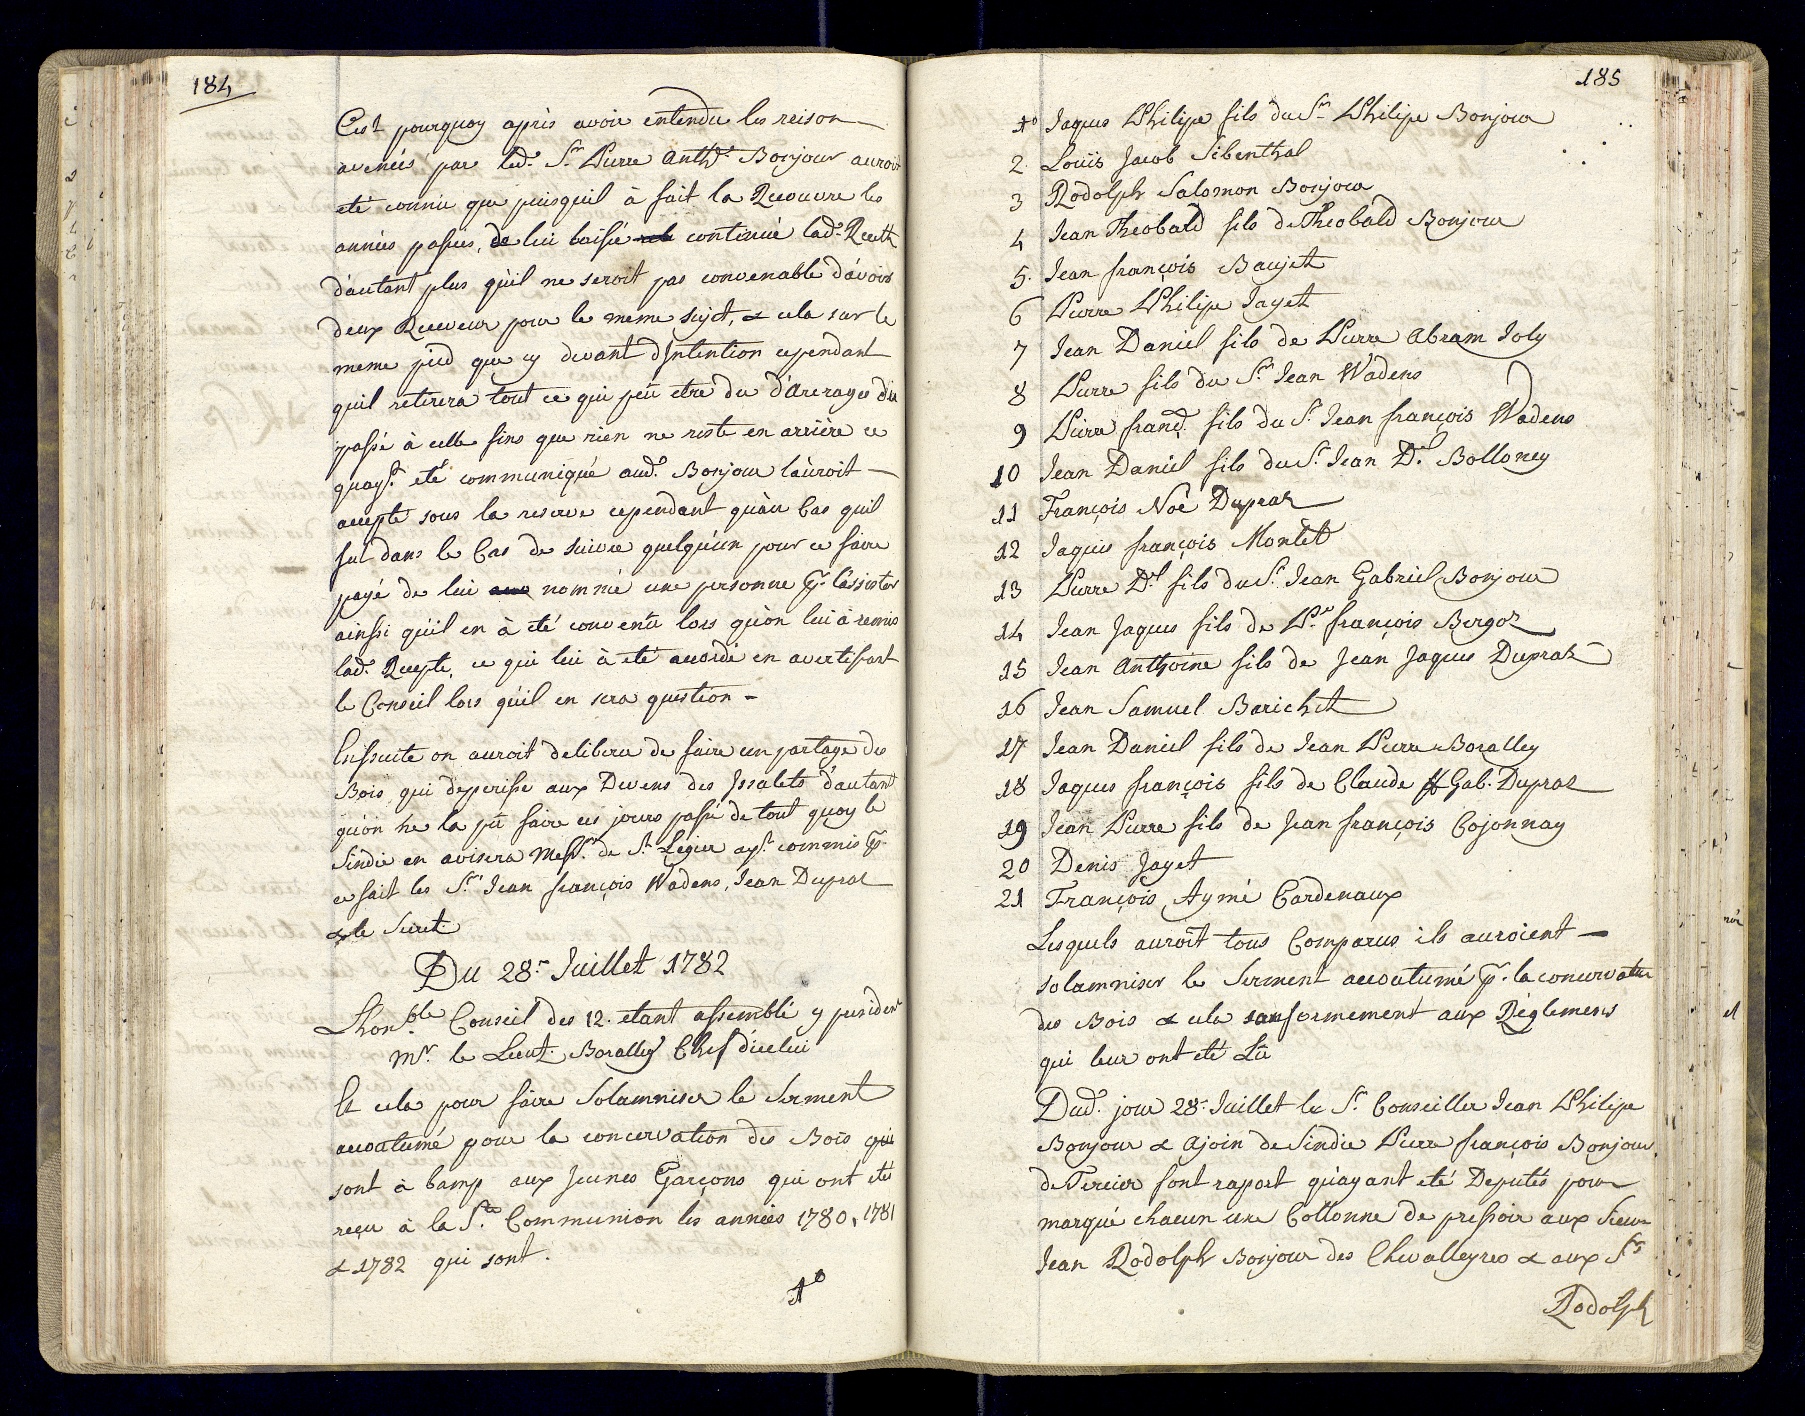 184
C'est pourquoy aprés avoir entendu les reison
avenées par led.t S.r Pierre Anth.e Bonjour auroit
eté connu que puisquil à fait la Recouvre les
années passées, de lui laissé continué lad.e Recette
d'autant plus qu'il ne seroit pas convenable d'avoir
deux Receveur pour le meme sujet, & cela sur le
meme pied que cy devant d'Intention cependant
quil retirera tout ce qui peut etre du d'Arerages du
passé à celle fins que rien ne reste en arrière ce
quay.t eté communiqué aud.t Bonjour l'auroit
accepté sous la reserve cependant qu'au Cas quil
fut dans le Cas de suivre quelqu'un pour ce faire
payé de lui nommé une personne p.r l'assister
ainssi qu'il en à eté convenu lors qu'on lui à remis
lad.e Recepte, ce qui lui à eté accordé en avertissant
le Conseil lors qu'il en sera question -
Enssuite on auroit deliberer de faire un partage des
Bois qui déperisse aux Devens des Issalets d'autant
qu'on ne la pû faire ces jours passé de tout quoy le
Sindic en avisera Mess.rs de S.t Legier ay.t commis p.r
ce fait les S.rs Jean françois Wadens, Jean Dupraz
& le Secret.
Du 28.e Juillet 1782
L'hon.ble Conseil des 12. etant assemblé y president
M.r le Lieut. Boralley Chef d'icelui
Et cela pour faire Solamniser le Serment
accoutumé pour la concervation des Bois qui
sont à bamp aux Jeunes Garçons qui ont etés
reçu à la S.te Communion les années 1780, 1781
& 1782 qui sont.
1°
185
1° Jaques Philipe fils du S.r Philipe Bonjour
2. Louis Jacob Sibenthal
3 Rodolph Salomon Bonjour
4 Jean Theobald fils de Theobald Bonjour
5. Jean françois Baujet
6 Pierre Philipe Jayet
7 Jean Daniel fils de Pierre Abram Joly
8 Pierre fils du S.r Jean Wadens
9 Pierre franç. fils du S.r Jean françois Wadens
10 Jean Daniel fils du S.r Jean D.l Bolloney
11 François Noé Dupraz
12 Jaques françois Montet
13 Pierre D.l fils du S.r Jean Gabriel Bonjour
14 Jean Jaques fils de P.re françois Bergoz
15 Jean Anthoine fils de Jean Jaques Dupraz
16 Jean Samuel Barichet
17 Jean Daniel fils de Jean Pierre Boralley
18 Jaques françois fils de Claude Gab. Dupraz
19 Jean Pierre fils de Jean françois Cojonnay
20 Denis Jayet
21 François Aymé Cardenaux
Lesquels auroit tous Comparus ils auroient
solamniser le Serment accoutumé p.r la concervation
des Bois & cela conformement aux Réglemens
qui leur ont eté Lû
Dud.t jour 28.e Juillet le S.r Conseiller Jean Philipe
Bonjour & Ajoin de Sindic Pierre françois Bonjour,
de Tercier font raport qu'ayant eté Deputés pour
marqué chacun une Collonne de pressoir aux Sieur
Jean Rodolph Bonjour des Chevalleyres & aux S.rs
Rodolph